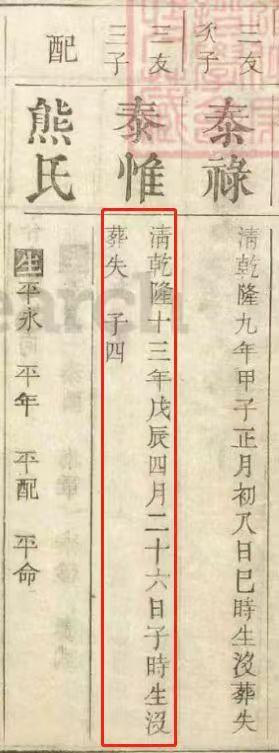 二友
次子
泰祿
清乾隆九年甲子正月初八日巳時生没葬失
三友
三子
泰惟
清乾隆十三年戊辰四月二十六日子時生没
葬失 子四
配
熊氏
生平永 平年 平配 平命
earch